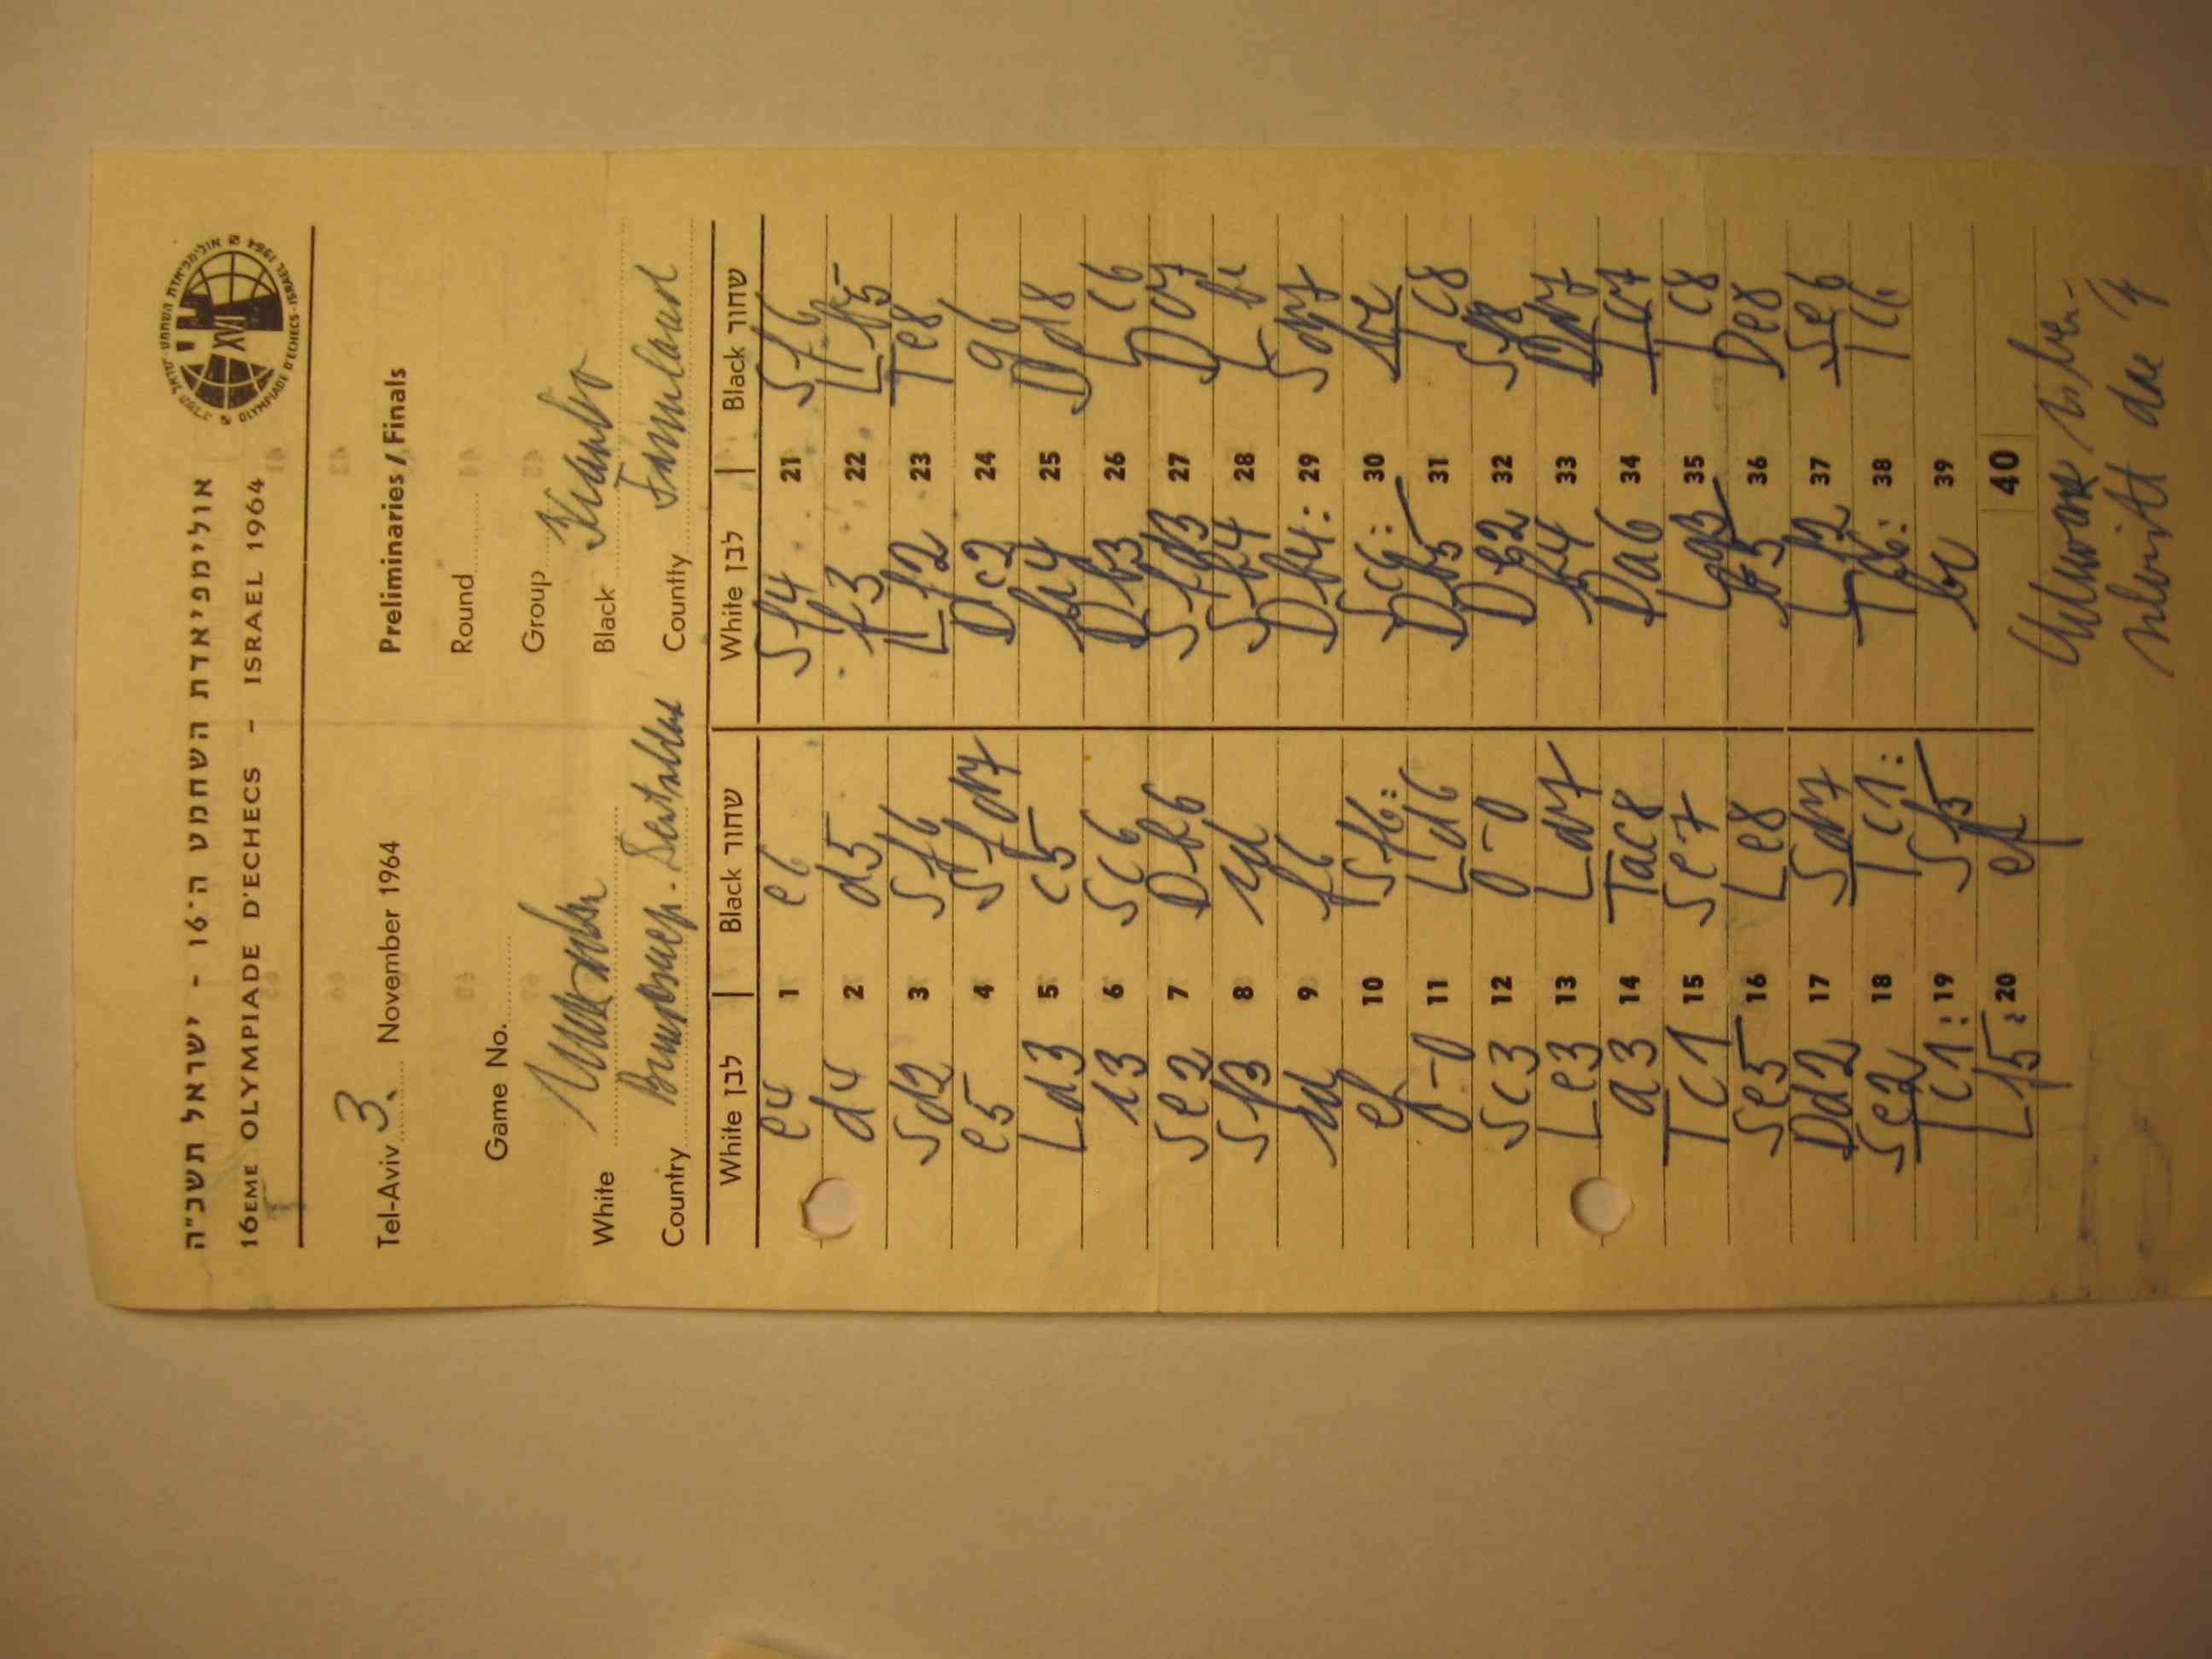 אולימפיאדת השחמט ה־16 - ישראל תשכ"ה
16EME OLYMPIADE D'ECHECS - ISRAEL 1964
אולימפיאדת השחמט · ישראל
OLYMPIADE D'ECHECS · ISRAEL 1964
XVI
Tel-Aviv 3. November 1964
Preliminaries / Finals
Game No.
Round
Group
White
Black
Country Bundesrep. Deutschland
Country
White לבן | Black שחור
e4 1 e6
d4 2 d5
Sd2 3 Sf6
e5 4 Sfd7
Ld3 5 c5
c3 6 Sc6
Se2 7 Db6
Sf3 8 cd
cd 9 f6
ef 10 Sf6:
0-0 11 Ld6
Sc3 12 0-0
Le3 13 Ld7
a3 14 Tac8
Tc1 15 Se7
Se5 16 Le8
Dd2 17 Sd7
Se2 18 Tc1:
Tc1: 19 Sf5
Lf5: 20 ef
White לבן | Black שחור
Sf4 21 Sf6
f3 22 Lb5
Lf2 23 Te8
Dc2 24 g6
a4 25 Dd8
Db3 26 Lc6
Sfd3 27 Dc7
Sb4 28
Db4: 29 Sd7
Sc6: 30 bc
Db5 31 Tc8
De2 32 Sf8
b4 33 Dd7
Da6 34 Tc7
Lg3 35 Tc8
b5 36 De8
Lf2 37 Se6
Tc6: 38 Tc6:
bc 39
40